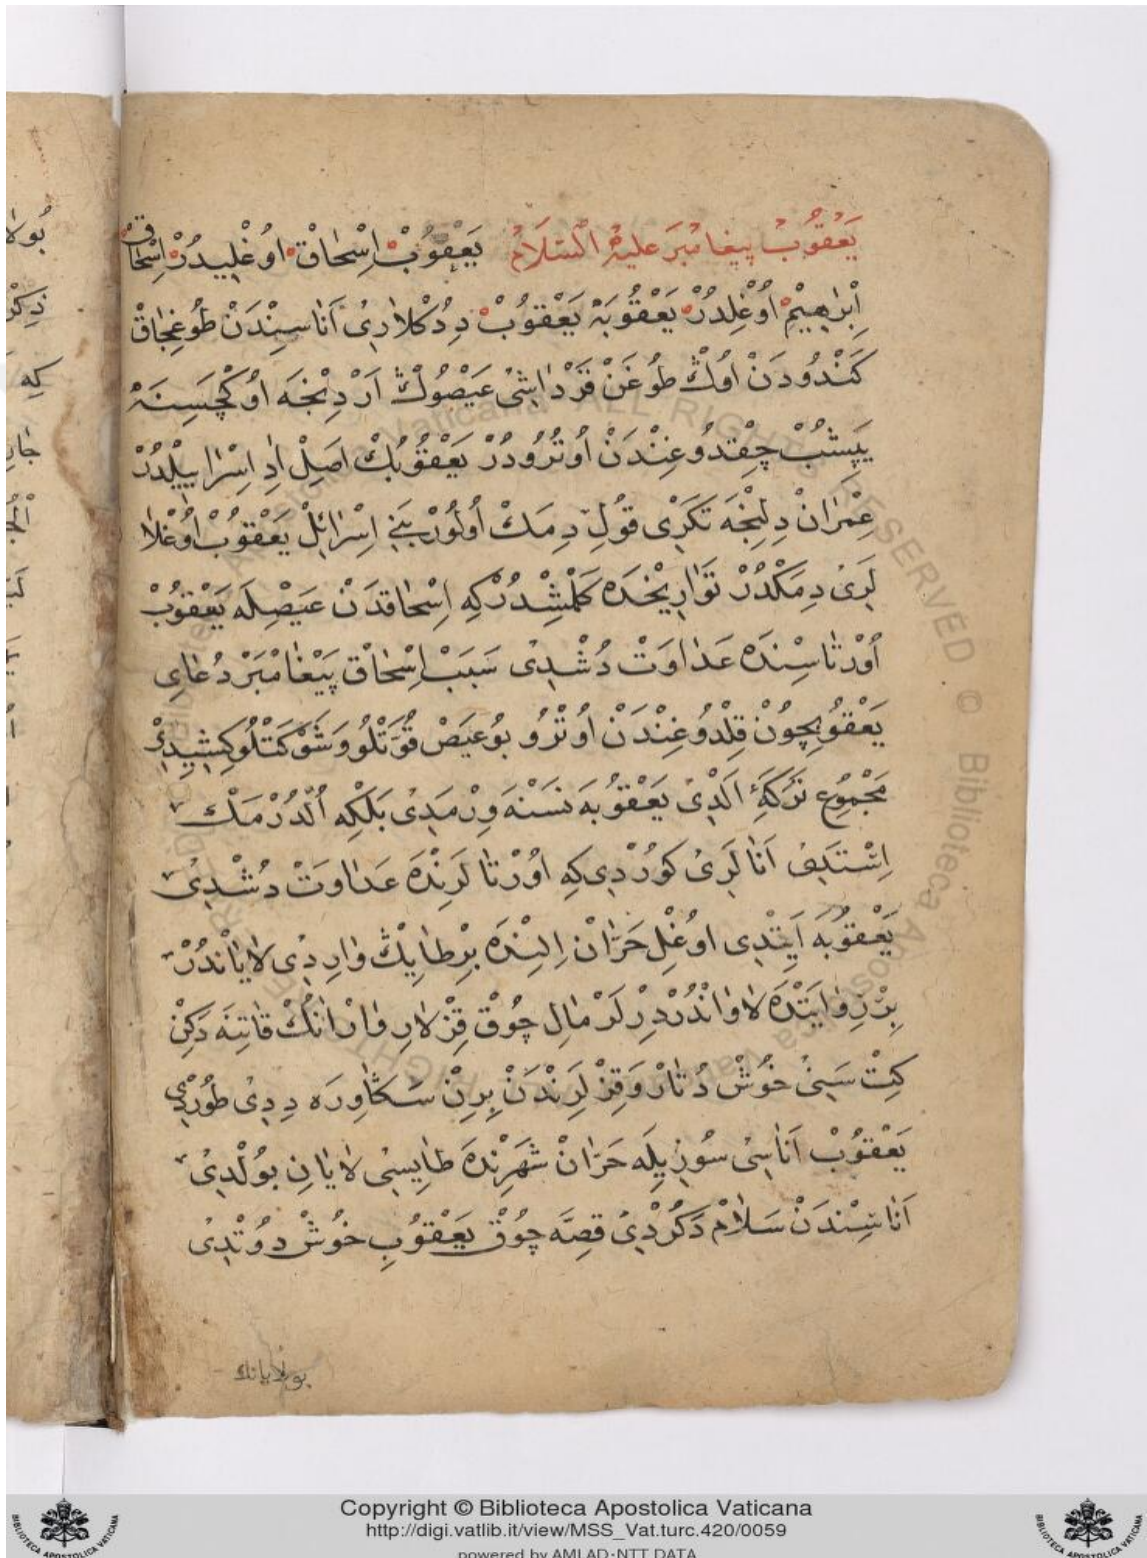 يَعْقُوبْ پيغامبر عليه السلام يَعْقُوبْ اِسْحٰاقْ اوُغْلِيدُرْ اِسْحٰاقْ
اِبْرٰهِيمْ اوُغْلِدُرْ يَعْقُوبَهْ يَعْقوُبْ دِدُكْلاٰرِىْ اَنٰاسِنْدَنْ طوُغِجٰاقْ
كَنْدُودَنْ اوُلْ طوُغَنْ قَرْدٰاشىْ عَيْصُوكْ اَرْدِنْجَه اوُكْچَسِنَهْ
يَپِشُبْ چِقْدوُغِنْدَنْ اُوتُرُودُرْ يَعْقُوبُكْ اَصِلْ اَدِ اِسْرٰاييلْدُرْ
عِمْرٰانْ دِلِنْجَه تَكْرِى قُولِ دِمَكْ اُولُورْ بَنِي اِسْرٰائِلْ يَعْقوُبْ اوُغْلاٰ
لَرِىْ دِمَكْدُرْ تَوٰارِيْخْدَه كَلْمِشْدُرْ كِه اِسْحٰاقدَنْ عَيْصِلَه يَعْقوُبْ
اُورْتٰاسِنْدَه عَدٰاوَتْ دُشْدِىْ سَبَبْ اِسْحٰاقْ پَيْغٰامْبَرْ دُعٰاىِ
يَعْقُوبِچوُنْ قِلْدوُغِنْدَنْ اوُتْرُو بوُ عيَصْ قُوَّتْلوُ وَشَوْكَتْلوُ كِشِيدِىْ
مَجْموُعِ تَرَكَهٔ اَلْدِىْ يَعْقوُبَه نَسْنَه وِرْمَدِىْ بَلْكِه اُلْدُرْمَكْ
اِسْتَدِىْ اَنٰالَرِىْ كوُرْدِى كِه اوُرْتٰالَرِنْدَه عَدٰاوَتْ دُشْدِىْ
يَعْقوُبَه اَيِتْدِى اوُغْلِ حَرّٰانْ اِلِنْدَه بِرْ طٰايِكْ وٰارِدِى لاٰيٰانْدُرْ
بِرْ رِوٰايَتْدَه لاٰوٰانْدُرْ دِرْلَرْ مٰالِ چوُقْ قِزْلاٰرِ وٰارْ اٰنُكْ قٰاتِنَه دَكِنْ
كِتْ سَنِىْ خُوشْ دُتٰارْ وَقِزْلَرِنْدَنْ بِرِنْ سَكٰا وِرَه دِدِىْ طوُرْدِى
يَعْقوُبْ اَنٰاسِىْ سُوزِيلَه حَرّٰانْ شَهْرِنْدَه طٰايِسِىْ لاٰيٰانِ بوُلْدِىْ
اَنٰاسِنْدَنْ سَلاٰمْ دَكُرْدِىْ قِصَّه چوُقْ يَعْقوُبِ خُوشْ دوُتْدِىْ
بو لايانك
Copyright © Biblioteca Apostolica Vaticana
http://digi.vatlib.it/view/MSS_Vat.turc.420/0059
powered by AMLAD-NTT DATA